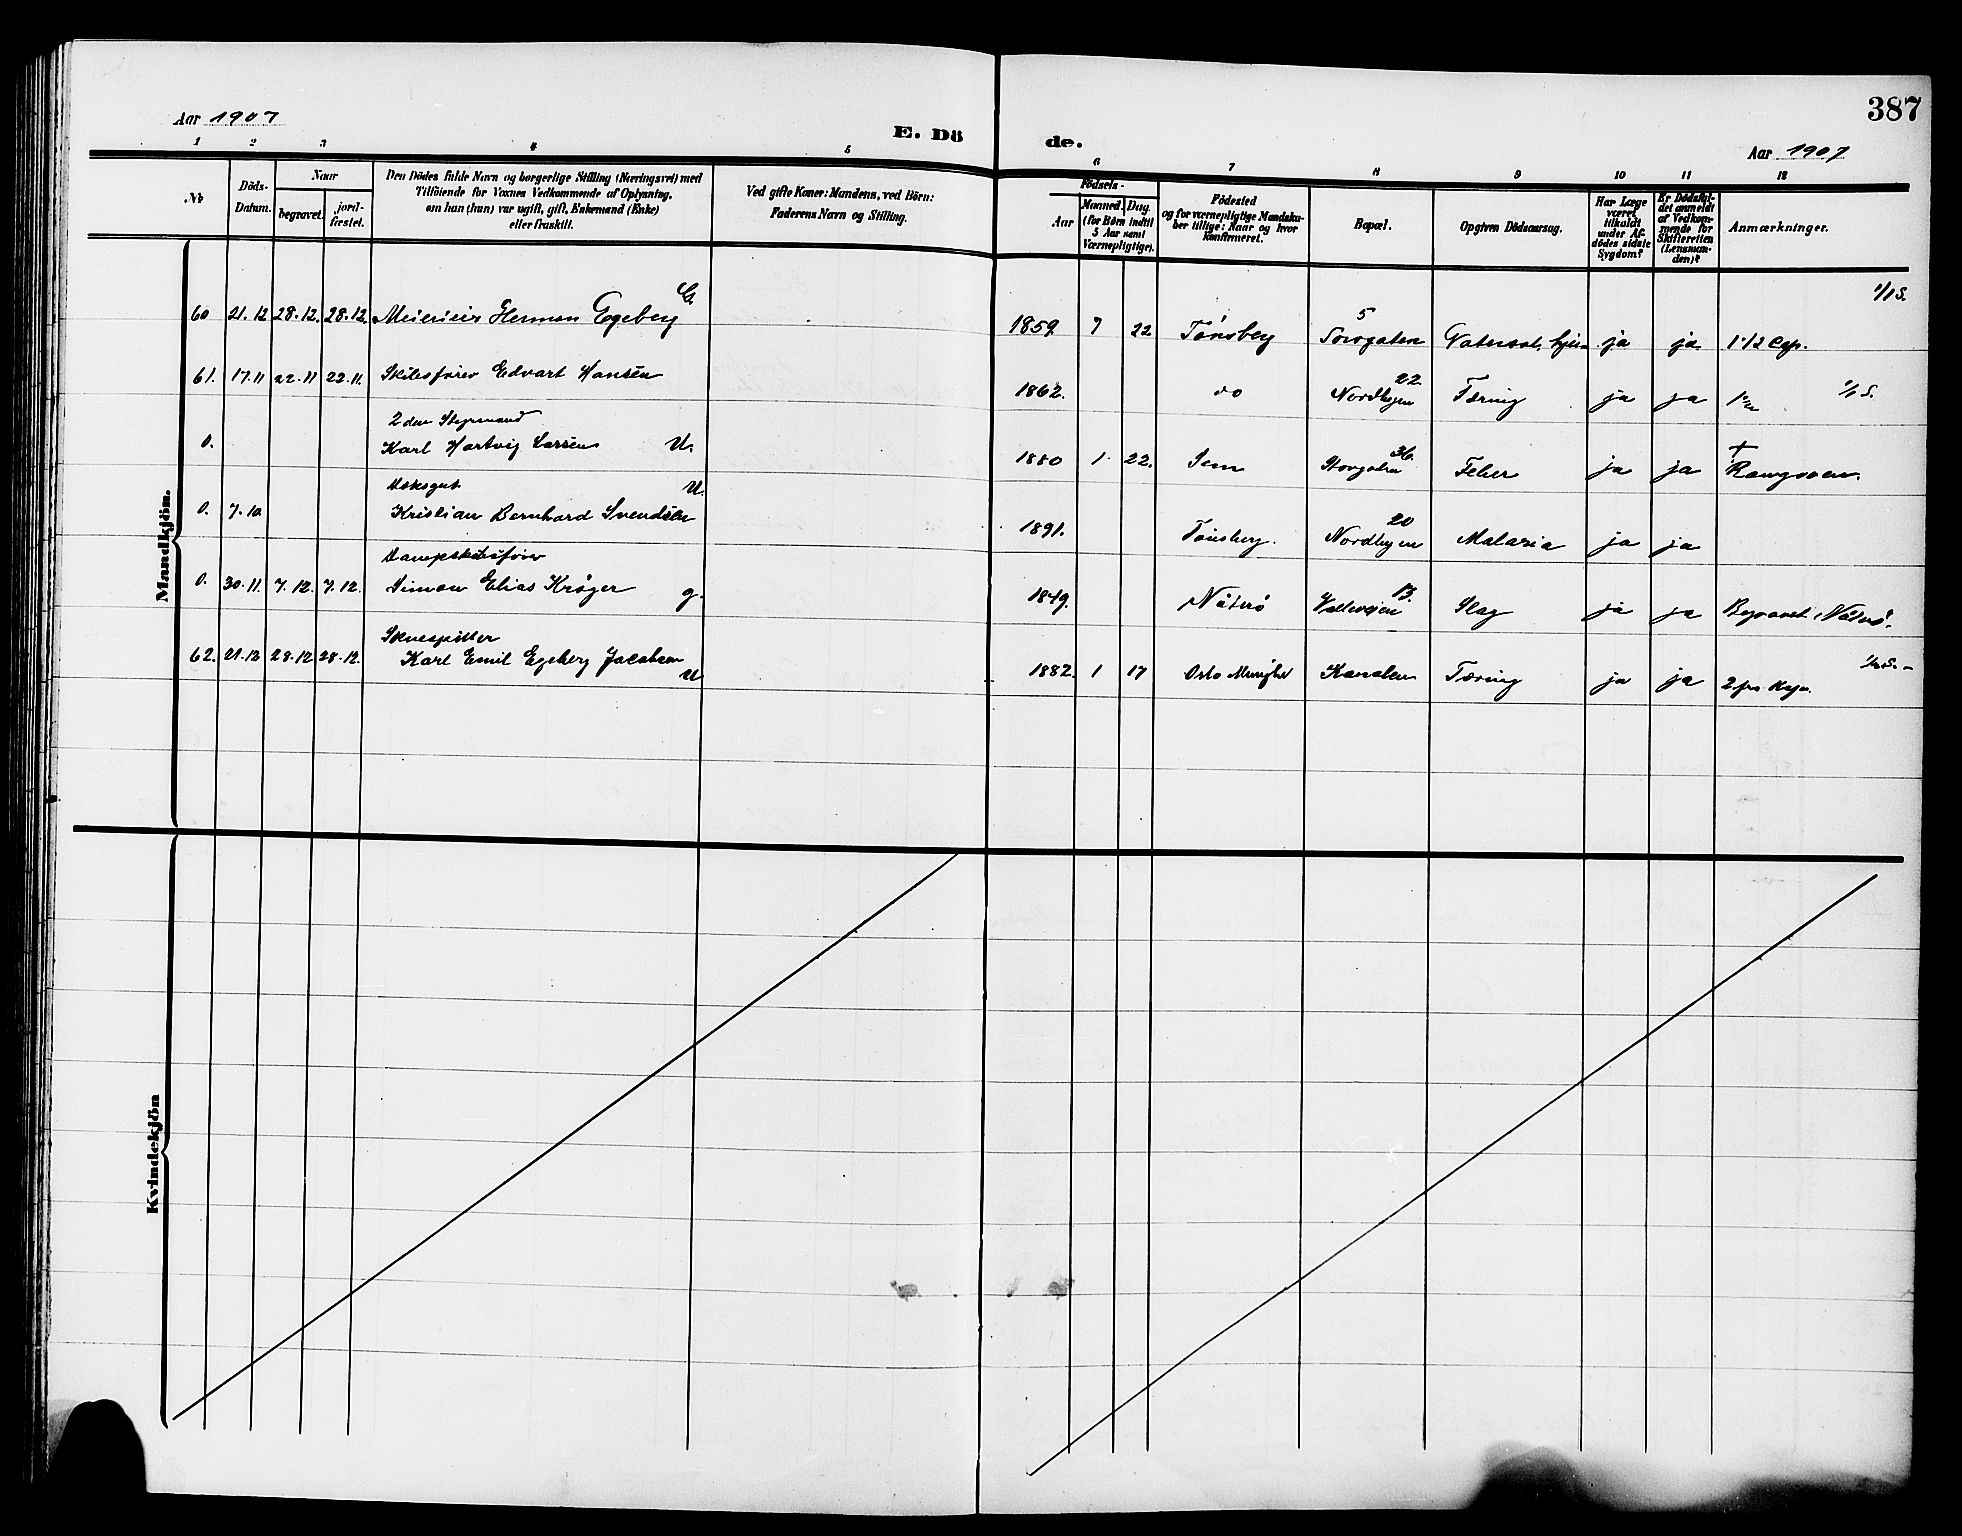 387
Aar 1907
E. Dö
de.
Aar 1907
1 2 3 4 5 6 7 8 9 10 11 12
No
Döds-
Datum.
Naar
begravet.
jord-
fæstet.
Den Dödes fulde Navn og borgerlige Stilling (Næringsvei) med
Tilföiende for Voxnes Vedkommende af Oplysning,
om han (hun) var ugift, gift, Enkemand (Enke)
eller fraskilt.
Ved gifte Koner: Mandens, ved Börn:
Faderens Navn og Stilling.
Födsels-
Aar
Maaned. Dag.
(for Börn indtil
5 Aar samt
Værnepligtige).
Födested
og for værnepligtige Mandska-
ber tillige: Naar og hvor
Konfirmeret.
Bopæl.
Opgiven Dödsaarsag.
Har Læge
været
tilkaldt
under Af-
dödes sidste
Sygdom?
Er Dödsfal-
det anmeldt
af Vedkom-
mende for
Skifteretten
(Lensman-
den)?
Anmærkninger.
Mandkjön.
60 21.12 28.12. 28.12. Meierieier Herman Egeberg G. 1859 7 22 Tönsberg 5 Torvgaten ja ja
61. 17.11 22.11 22.11. Skibsförer Edvart Hansen 1862. do 22 Nordbyen Tæring ja ja
2den Styrmand
0. Karl Hartvig Larsen U. 1880 1 22. Sem 36. Storgaten Feber ja ja
Dæksgut
0. 7.10 Kristian Bernhard Svendsen U. 1891. Tönsberg. 20 Nordbyen Malaria ja ja
Dampskibsförer
0. 30.11. 7.12. 7.12. Simon Elias Kröger g. 1849. Nöterö 13. Slag ja ja Begravet i Nöterö.
Skuespiller
62. 21.12 28.12 28.12. Karl Emil Egeberg Jacobsen U 1882. 1 17 Oslo Menighet Kanalen Tæring ja ja
Kvindekjön